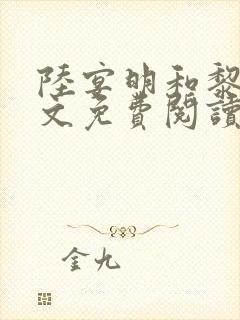 陸宴明和黎
文免費閱讀
金九